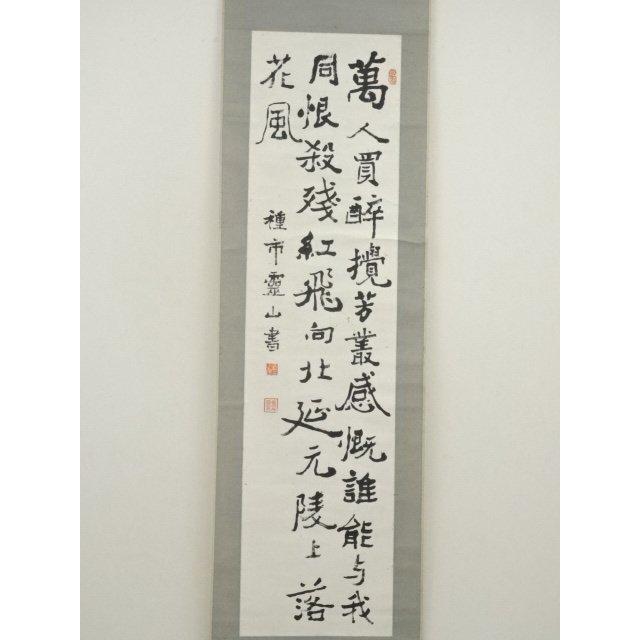 萬人買醉攪芳叢感慨誰能与我
同恨殺残紅飛向北延元陵上落
花風
種市靈山書